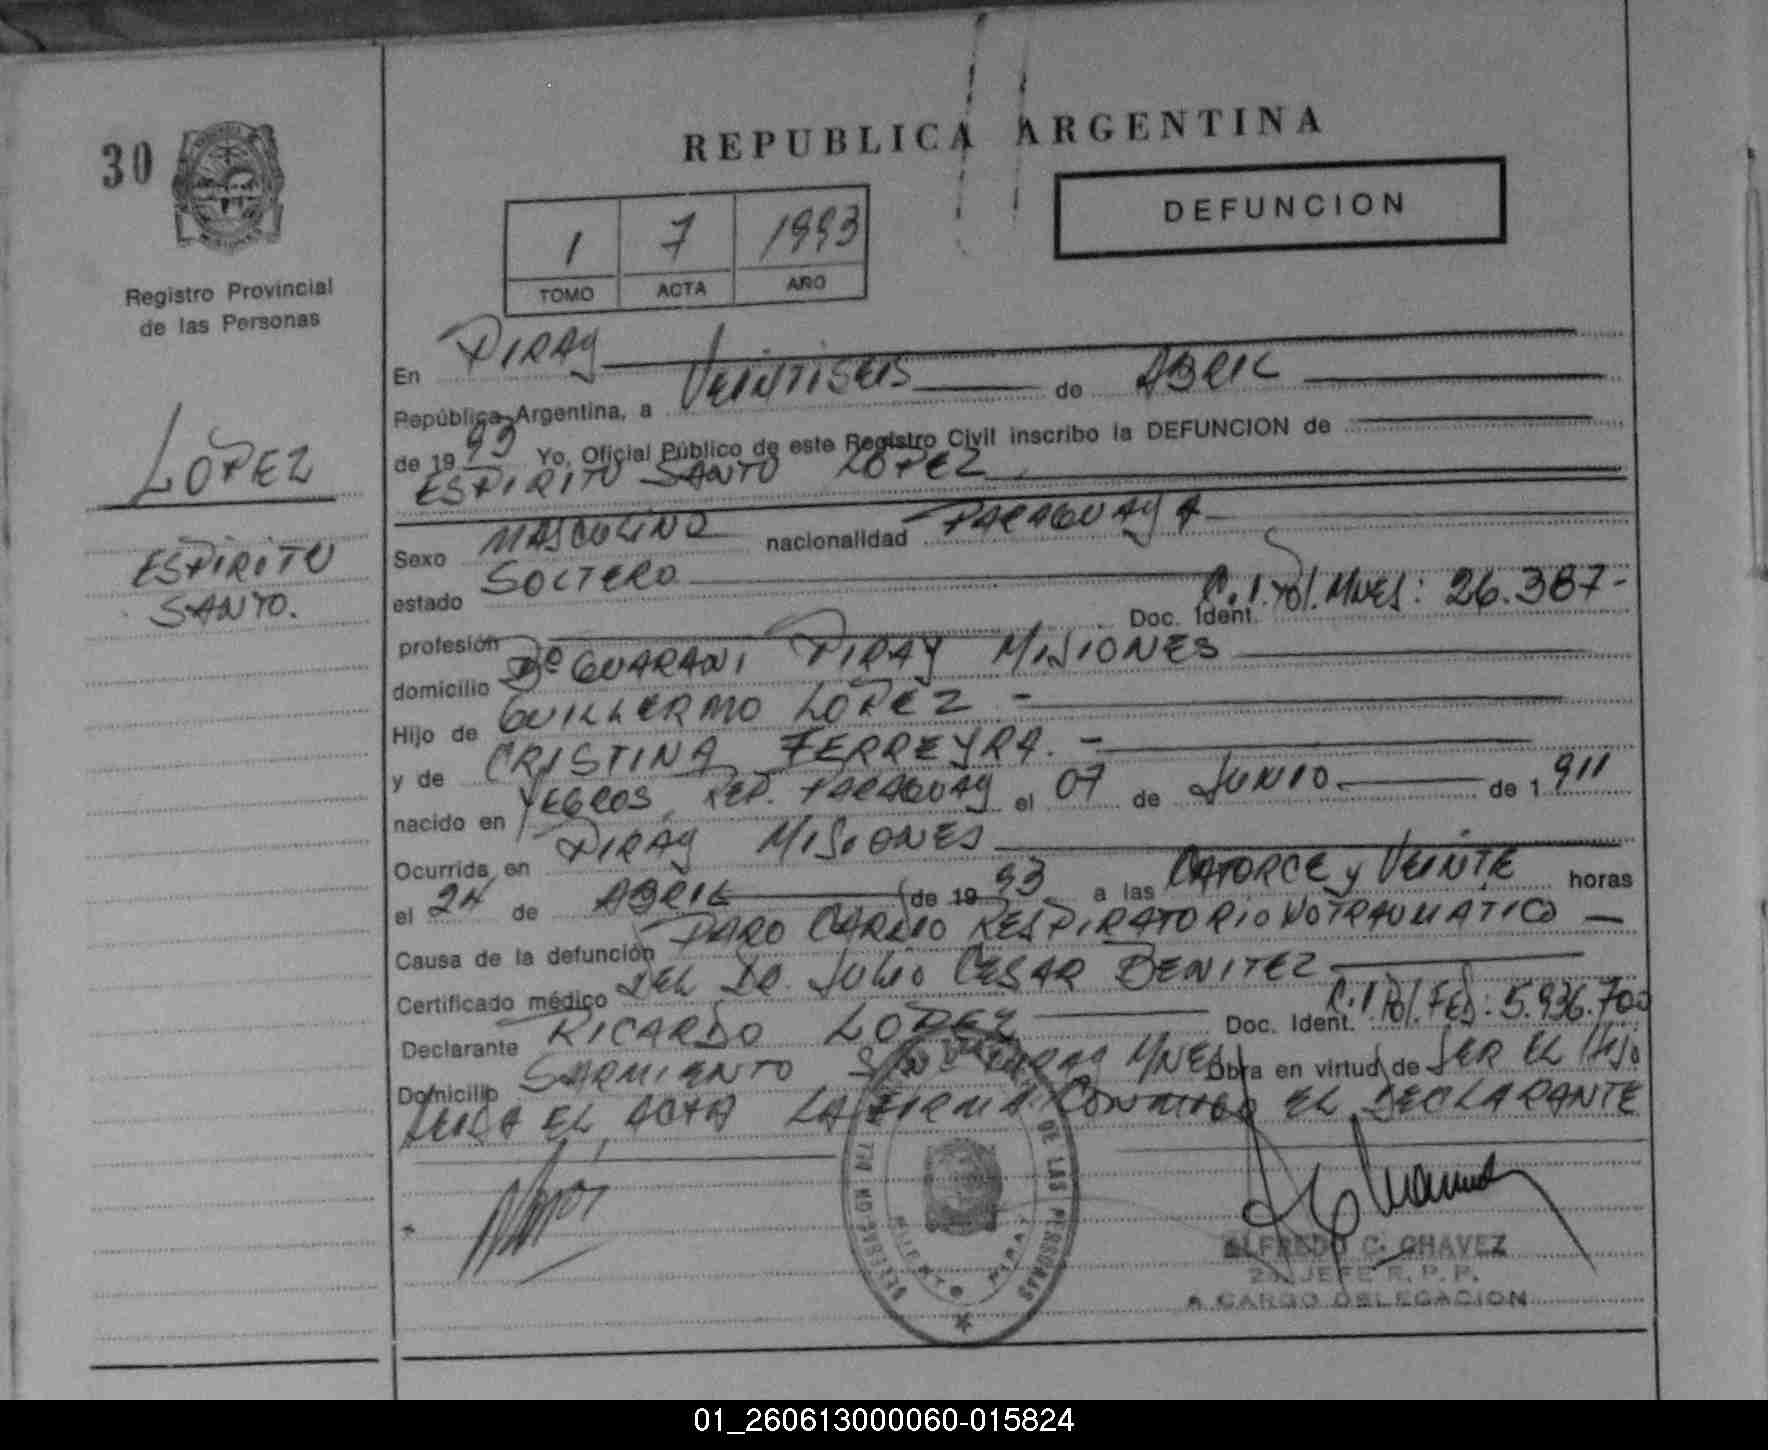 30
Registro Provincial
de las Personas
LOPEZ
ESPIRITU
SANTO.
REPUBLICA ARGENTINA
DEFUNCION
1 7 1993
TOMO ACTA AÑO
En PIRAY
República Argentina, a VEINTISEIS de ABRIL
de 1993 Yo, Oficial Público de este Registro Civil inscribo la DEFUNCION de
ESPIRITU SANTO LOPEZ
Sexo MASCULINO nacionalidad PARAGUAYA
estado SOLTERO
profesión Doc. Ident. C.I. Pol. Mnes: 26.387-
domicilio Bº GUARANI PIRAY MISIONES
Hijo de GUILLERMO LOPEZ -
y de CRISTINA FERREYRA. -
nacido en YEGROS, REP. PARAGUAY el 07 de JUNIO de 1911
Ocurrida en PIRAY MISIONES
el 24 de ABRIL de 1993 a las CATORCE y VEINTE horas
Causa de la defunción PARO CARDIO RESPIRATORIO NO TRAUMATICO
Certificado médico DEL DR. JULIO CESAR BENITEZ
Declarante RICARDO LOPEZ Doc. Ident. C.I Pol. FED: 5.936.700
Domicilio SARMIENTO MNES Obra en virtud de SER EL HIJO
EL ACTA LA FIRMA CONMIGO EL DECLARANTE
DE LAS PERSONAS
PIRAY
ALFREDO C. CHAVEZ
2º JEFE R. P. P.
A CARGO DELEGACION
01_260613000060-015824